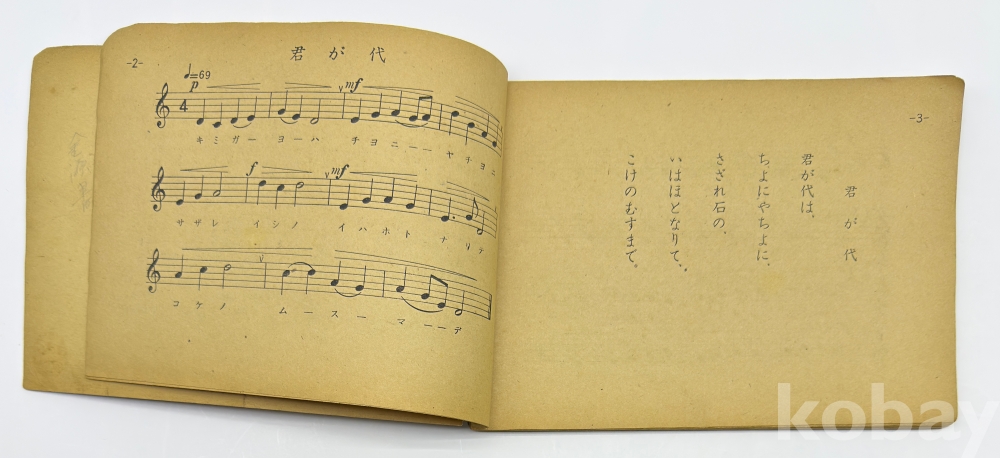 -2-
君が代
♩=69
p
mf
4
キミガーヨーハ チヨニーー ヤチヨニ
f
mf
サザレ イシノ イハホト ナリテ
コケノ ムースー マーーデ
-3-
君が代
君が代は、
ちよにやちよに、
さざれ石の、
いはほとなりて、
こけのむすまで。
kobay